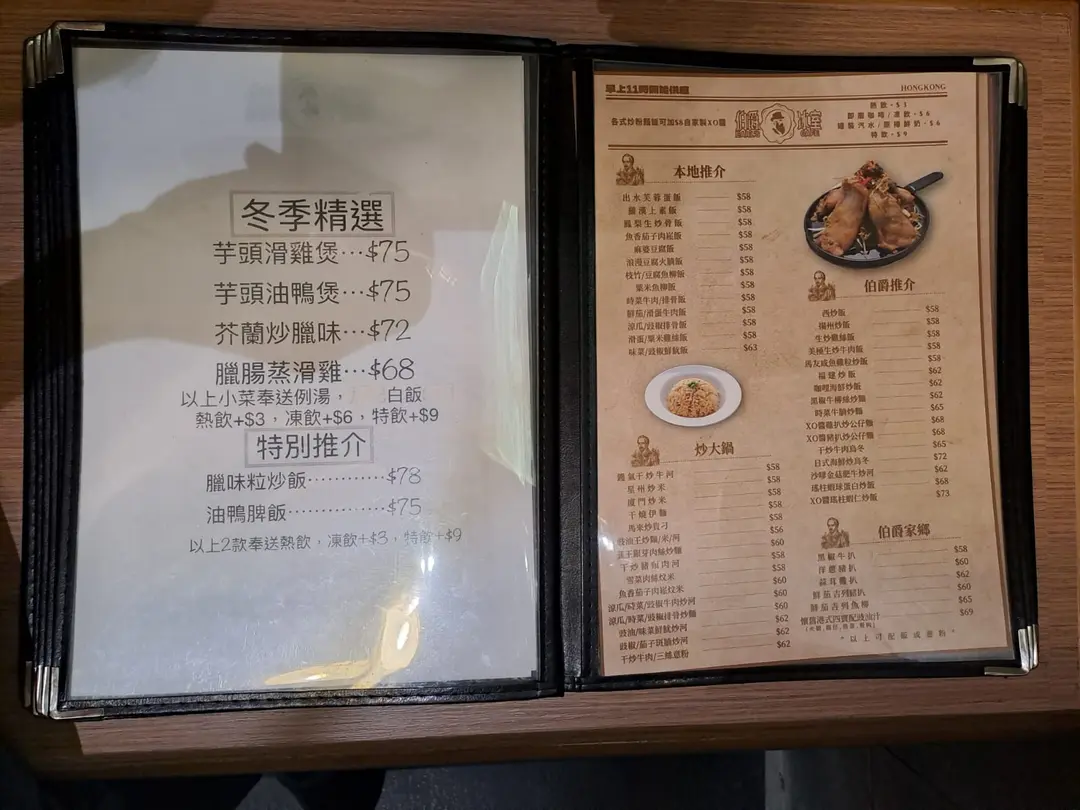 冬季精選
芋頭滑雞煲…$75
芋頭油鴨煲…$75
芥蘭炒臘味…$72
臘腸蒸滑雞…$68
以上小菜奉送例湯， 白飯
熱飲+$3，凍飲+$6，特飲+$9
特別推介
臘味粒炒飯…………$78
油鴨脾飯……………$75
以上2款奉送熱飲，凍飲+$3，特飲+$9
早上11時開始供應
HONGKONG
各式炒粉麵飯可加$8自家製XO醬
伯爵 冰室
EARLS CAFE
熱飲・$1
即磨咖啡/凍飲・$6
樽裝汽水/原樽鮮奶・$6
特飲・$9
本地推介
出水芙蓉蛋飯 $58
羅漢上素飯 $58
鳳梨生炒骨飯 $58
魚香茄子肉崧飯 $58
麻婆豆腐飯 $58
浪漫豆腐火腩飯 $58
枝竹/豆腐魚柳飯 $58
粟米魚柳飯 $58
時菜牛肉/排骨飯 $58
鮮茄/滑蛋牛肉飯 $58
涼瓜/豉椒排骨飯 $58
滑蛋/粟米雞絲飯 $58
味菜/豉椒鮮魷飯 $63
炒大鍋
鑊氣干炒牛河 $58
星州炒米 $58
廈門炒米 $58
干燒伊麵 $58
馬來炒貴刁 $58
豉油王炒麵/米/河 $56
豉王銀芽肉絲炒麵 $60
干炒豬頸肉河 $58
雪菜肉絲炆米 $58
魚香茄子肉崧炆米 $60
涼瓜/時菜/豉椒牛肉炒河 $60
涼瓜/時菜/豉椒排骨炒麵 $60
豉油/味菜鮮魷炒河 $62
豉椒/茄子斑腩炒河 $62
干炒牛肉/三絲意粉 $62
伯爵推介
西炒飯 $58
揚州炒飯 $58
生炒雞絲飯 $58
美極生炒牛肉飯 $58
馬友咸魚雞粒炒飯 $58
福建炒飯 $62
咖喱海鮮炒飯 $62
黑椒牛柳絲炒麵 $62
時菜牛腩炒麵 $65
XO醬雞扒炒公仔麵 $68
XO醬豬扒炒公仔麵 $68
干炒牛肉烏冬 $65
日式海鮮炒烏冬 $72
沙嗲金菇肥牛炒河 $62
瑤柱蝦球蛋白炒飯 $68
XO醬瑤柱蝦仁炒飯 $73
伯爵家鄉
黑椒牛扒 $58
洋蔥豬扒 $60
蒜茸雞扒 $62
鮮茄吉列豬扒 $60
鮮茄吉列魚柳 $65
懷舊港式四寶配豉油汁 $69
"以上可配飯或意粉"